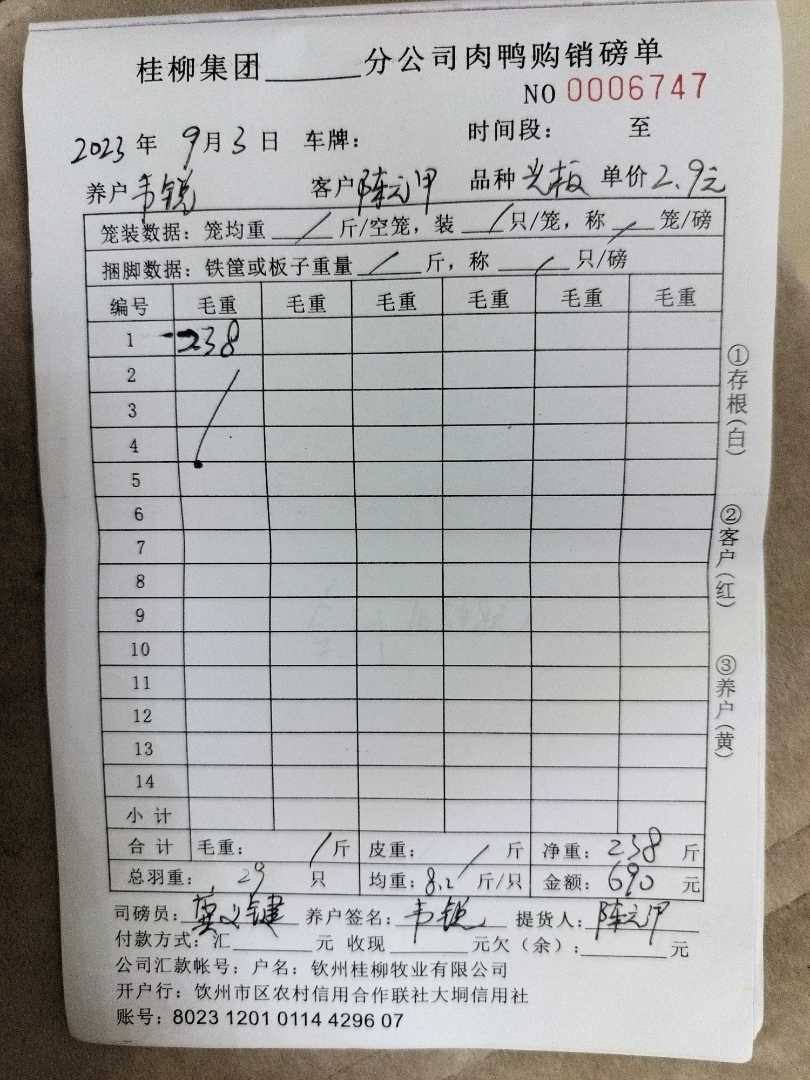 桂柳集团______分公司肉鸭购销磅单
NO 0006747
2023年 9月3日 车牌: 时间段: 至
养户韦锐 客户陈元甲 品种光板 单价2.9元
笼装数据: 笼均重 / 斤/空笼, 装 / 只/笼, 称 / 笼/磅
捆脚数据: 铁筐或板子重量 / 斤, 称 / 只/磅
编号 毛重 毛重 毛重 毛重 毛重 毛重
1 238
2
3
4
5
6
7
8
9
10
11
12
13
14
小计
合计 毛重: / 斤 皮重: / 斤 净重: 238 斤
总羽重: 29 只 均重: 8.2 斤/只 金额: 690 元
司磅员: 键 养户签名: 韦锐 提货人: 陈元甲
付款方式: 汇______元 收现______元欠(余):______元
公司汇款帐号: 户名: 钦州桂柳牧业有限公司
开户行: 饮州市区农村信用合作联社大垌信用社
账号: 8023 1201 0114 4296 07
①存根(白)
②客户(红)
③养户(黄)